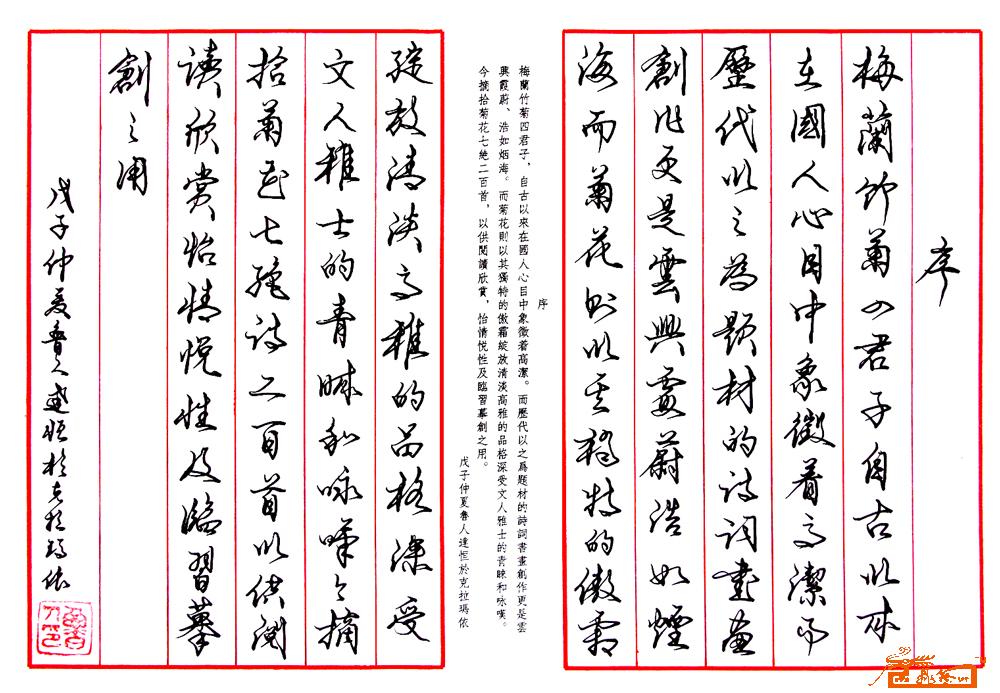 序
梅蘭竹菊四君子自古以來
在國人心目中象徵着高潔而
歷代以之為題材的詩詞書畫
創作更是雲興霞蔚浩如煙
海而菊花則以其獨特的傲霜
序
梅蘭竹菊四君子，自古以來在國人心目中象徵着高潔。而歷代以之爲題材的詩詞書畫創作更是雲
興霞蔚、浩如烟海。而菊花則以其獨特的傲霜綻放清淡高雅的品格深受文人雅士的青睞和咏嘆。
今摘拾菊花七絶二百首，以供閱讀欣賞，怡情悅性及臨習摹創之用。
戊子仲夏魯人達恒於克拉瑪依
綻放清淡高雅的品格深受
文人雅士的青睞和咏嘆今摘
拾菊花七絕詩二百首以供閱
讀欣賞怡情悅性及臨習摹
創之用
戊子仲夏魯人達恒於克拉瑪依